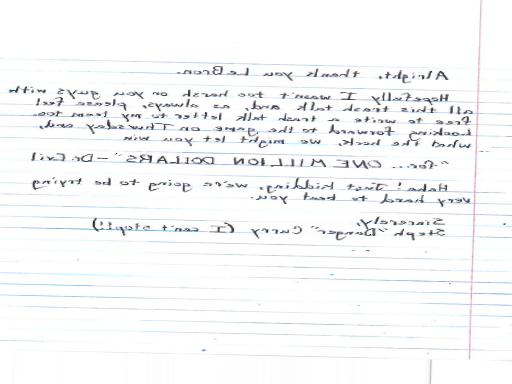 Alright, thank you LeBron.
Hopefully I wasn't too harsh on you guys with
all this trash talk and, as always, please feel
free to write a trash talk letter to my team too.
Looking forward to the game on Thursday and,
what the heck, we might let you win
"for... ONE MILLION DOLLARS" - Dr Evil
Haha! Just kidding, we're going to be trying
very hard to beat you.
Sincerely,
Steph "Danger" Curry (I can't stop!!)